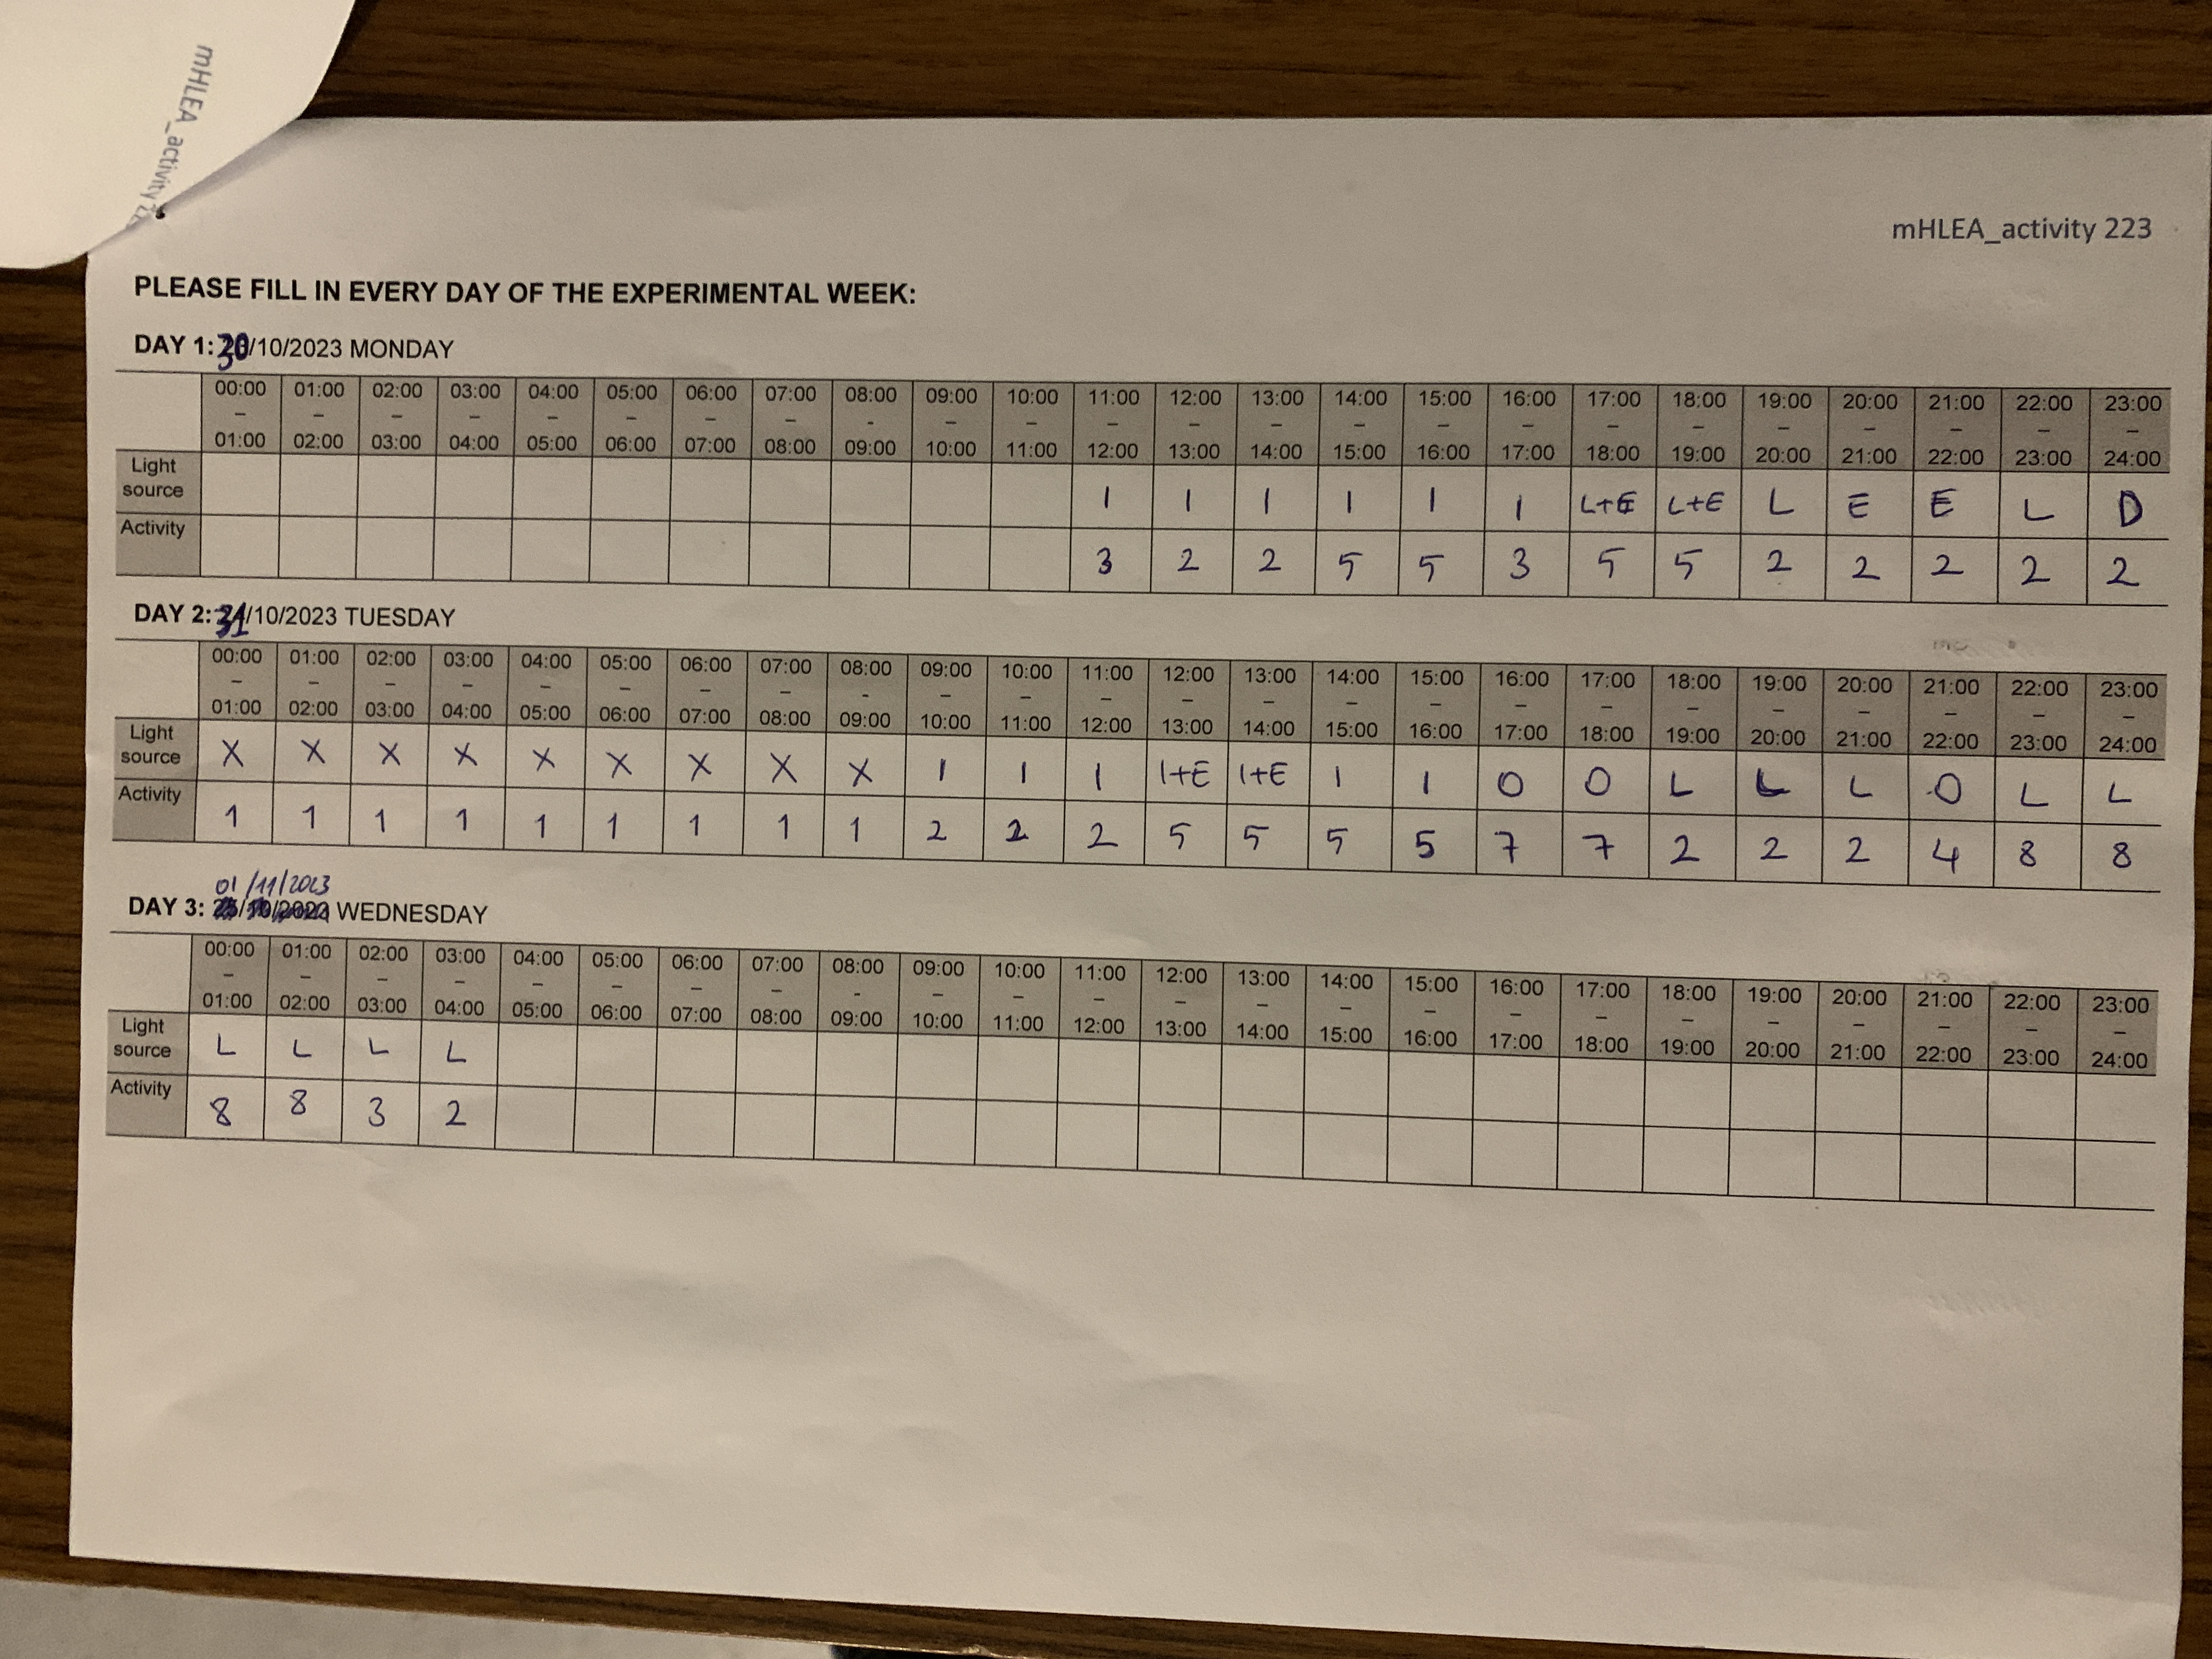 mHLEA_activity 223
PLEASE FILL IN EVERY DAY OF THE EXPERIMENTAL WEEK:
DAY 1: 30/10/2023 MONDAY
00:00 – 01:00 01:00 – 02:00 02:00 – 03:00 03:00 – 04:00 04:00 – 05:00 05:00 – 06:00 06:00 – 07:00 07:00 – 08:00 08:00 - 09:00 09:00 – 10:00 10:00 – 11:00 11:00 – 12:00 12:00 – 13:00 13:00 – 14:00 14:00 – 15:00 15:00 – 16:00 16:00 – 17:00 17:00 – 18:00 18:00 – 19:00 19:00 – 20:00 20:00 – 21:00 21:00 – 22:00 22:00 – 23:00 23:00 – 24:00
Light source I I I I I I L+E L+E L E E L D
Activity 3 2 2 5 5 3 5 5 2 2 2 2 2
DAY 2: 31/10/2023 TUESDAY
00:00 – 01:00 01:00 – 02:00 02:00 – 03:00 03:00 – 04:00 04:00 – 05:00 05:00 – 06:00 06:00 – 07:00 07:00 – 08:00 08:00 - 09:00 09:00 – 10:00 10:00 – 11:00 11:00 – 12:00 12:00 – 13:00 13:00 – 14:00 14:00 – 15:00 15:00 – 16:00 16:00 – 17:00 17:00 – 18:00 18:00 – 19:00 19:00 – 20:00 20:00 – 21:00 21:00 – 22:00 22:00 – 23:00 23:00 – 24:00
Light source X X X X X X X X X I I I I+E I+E I I O O L L L O L L
Activity 1 1 1 1 1 1 1 1 1 2 2 2 5 5 5 5 7 7 2 2 2 4 8 8
01/11/2023
DAY 3: WEDNESDAY
00:00 – 01:00 01:00 – 02:00 02:00 – 03:00 03:00 – 04:00 04:00 – 05:00 05:00 – 06:00 06:00 – 07:00 07:00 – 08:00 08:00 - 09:00 09:00 – 10:00 10:00 – 11:00 11:00 – 12:00 12:00 – 13:00 13:00 – 14:00 14:00 – 15:00 15:00 – 16:00 16:00 – 17:00 17:00 – 18:00 18:00 – 19:00 19:00 – 20:00 20:00 – 21:00 21:00 – 22:00 22:00 – 23:00 23:00 – 24:00
Light source L L L L
Activity 8 8 3 2
mHLEA_activity